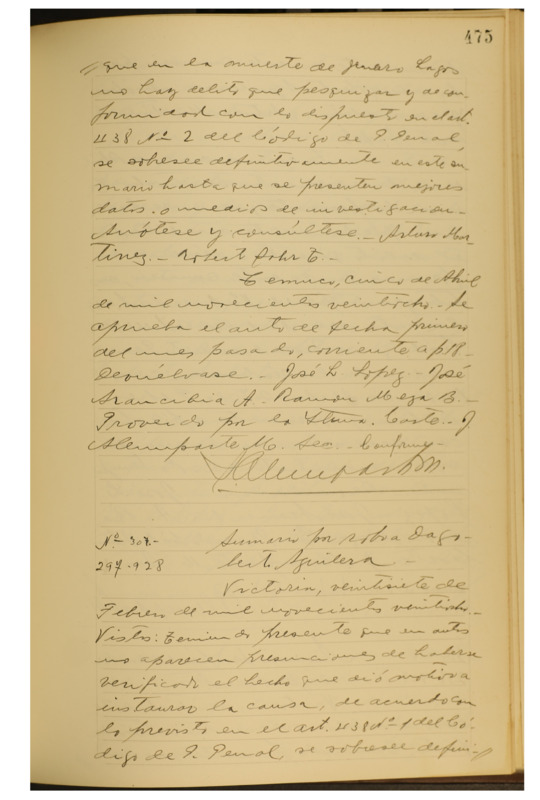 475
que en la muerte de Genaro Lagos
no hay delito que pesquizar y de con-
formidad con lo dispuesto en el art.
438 Nº 2 del Código de P. Penal,
se sobresee definitivamente en este su
mario hasta que se presenten mejores
datos o medios de investigación.-
Anótese y consúltese.- Arturo Mar-
tinez.- Robert Sohr E.-
Temuco, cinco de Abril
de mil novecientos veintiocho.- Se
aprueba el auto de fecha primero
del mes pasado, corriente a f 18.-
Devuélvase.- José L. Lopez.- José
Arancibia A. Ramon Meza B.-
Proveido por la Iltma. Corte.- J.
Alemparte M. Sec.- Conforme.-
J. Alemparte M.
Nº 307.-
Sumario por robo a Dago-
297-928
berto Aguilera.-
Victoria, veintisiete de
Febrero de mil novecientos veintiocho.-
Vistos: Teniendo presente que en autos
no aparecen presunciones de haberse
verificado el hecho que dió motivo a
instaurar la causa, de acuerdo con
lo previsto en el art. 438 Nº 1 del Có-
digo de P. Penal, se sobresee defini-